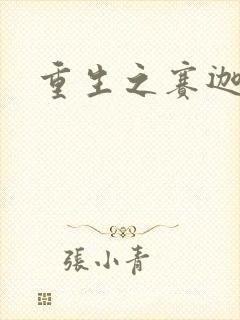 重生之赛迦
張小青